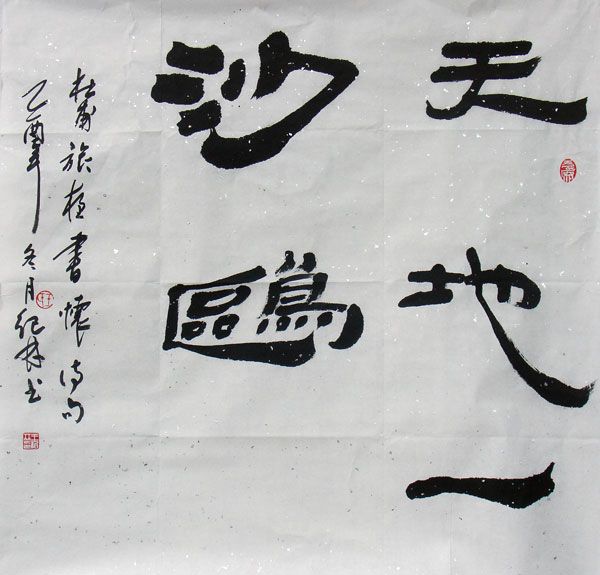 天地一
沙鷗
杜甫旅夜書懷詩句
乙酉年冬月紀林书